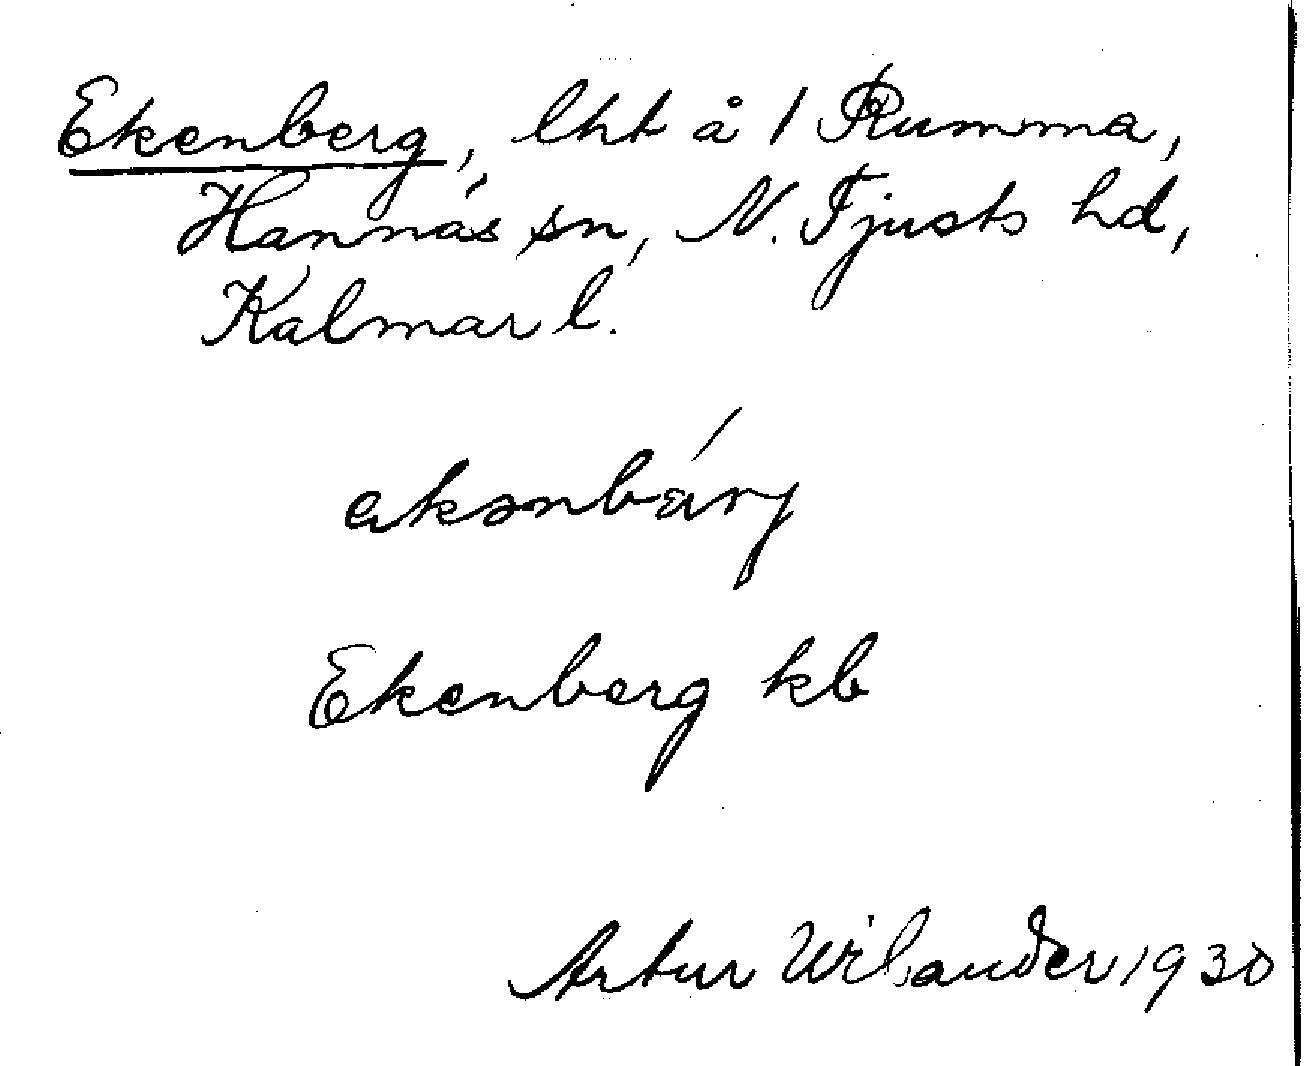 Ekenberg, lht å 1 Rumma,
Hannäs sn, N. Tjusts hd,
Kalmar l.
ekənbärj
Ekenberg kb
Artur Wilander 1930